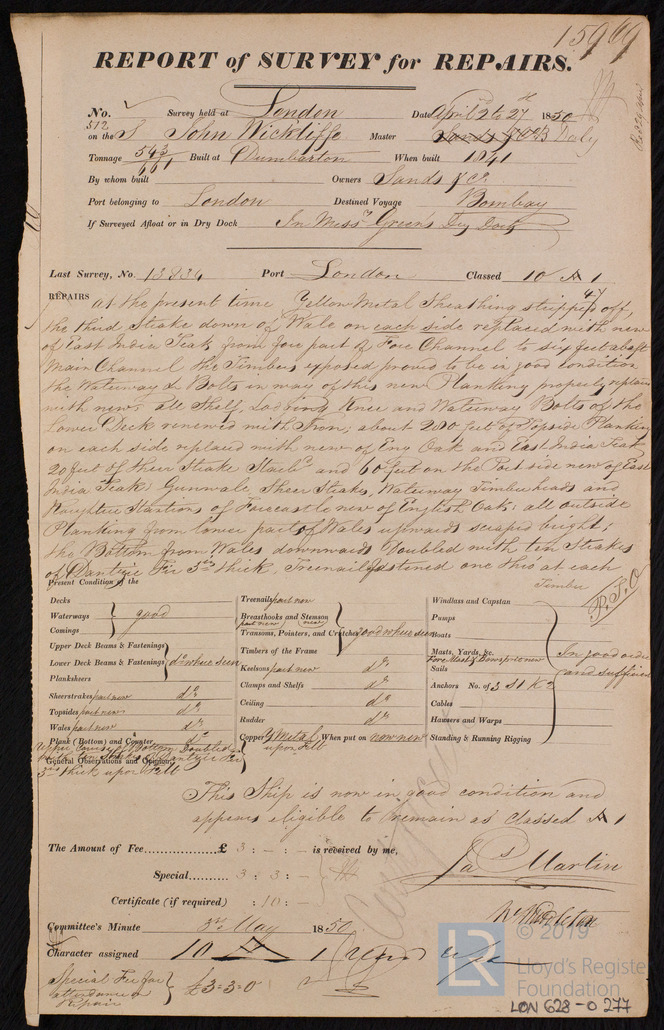 15969
REPORT of SURVEY for REPAIRS.
No. Survey held at London Date April 2 to 27th 1850
512
on the S John Wickliffe Master Daly
Tonnage 543/661 Built at Dumbarton When built 1841
By whom built Owners Sands & Co
Port belonging to London Destined Voyage Bombay
If Surveyed Afloat or in Dry Dock In Messrs Greens Dry Dock
Last Survey, No. 13834 Port London Classed 10 A 1
47
REPAIRS at the present time Yellow Metal Sheathing stripped off,
the third Strake down of Wale on each side replaced with new
of East India Teak from fore part of Fore Channel to six feet abaft
Main Channel the Timbers exposed proved to be in good condition
the Waterway & Bolts in way of this new Planking properly replaced
with new: all Shelf, Lodging Knee and Waterway Bolts of the
Lower Deck renewed with Iron; about 200 feet of Topside Planking
on each side replaced with new of Eng Oak and East India Teak
20 feet of Sheer Strake Starbd and 60 feet on the Port side new of East
India Teak: Gunwale Sheer Strakes, Waterway Timberheads and
Naughtie Stantions of Forecastle new of English Oak; all outside
Planking from lower part of Wales upwards scraped bright;
the Bottom from Wales downwards Doubled with ten Strakes
of Dantzic Fir 3 in thick, Treenail fastened one thro at each
Timber
P.T.O
Present Condition of the
Decks
Waterways } good
Comings
Upper Deck Beams & Fastenings
Lower Deck Beams & Fastenings } do where seen
Planksheers
Sheerstrakes part new do
Topsides part new do
Wales part new do
Plank (Bottom) and Counter do
Bottom Doubled
General Observations and Opinion
3 in thick upon Felt
Treenails part new
Breasthooks and Stemson part new (new)
Transoms, Pointers, and Crutches } good where seen
Timbers of the Frame
Keelsons part new do
Clamps and Shelfs do
Ceiling do
Rudder do
Copper Y Metal upon Felt When put on now new
Windlass and Capstan
Pumps
Boats
Masts, Yards, &c. Fore Mast & Bowsprit new
Sails
Anchors No. of 3 St K 2
Cables
Hawsers and Warps
Standing & Running Rigging
In good order
and sufficient
This Ship is now in good condition and
appears eligible to remain as Classed A 1
The Amount of Fee £ 3 : - : - is received by me,
Special 3 : 3 : -
Certificate (if required) : 10 : -
Jas Martin
Committee's Minute 3rd May 1850
Character assigned 10 A 1
Special Fee for
attendance
Repair } £3=3=0
© 2019
LR Lloyd's Register
Foundation
LON 628-0277